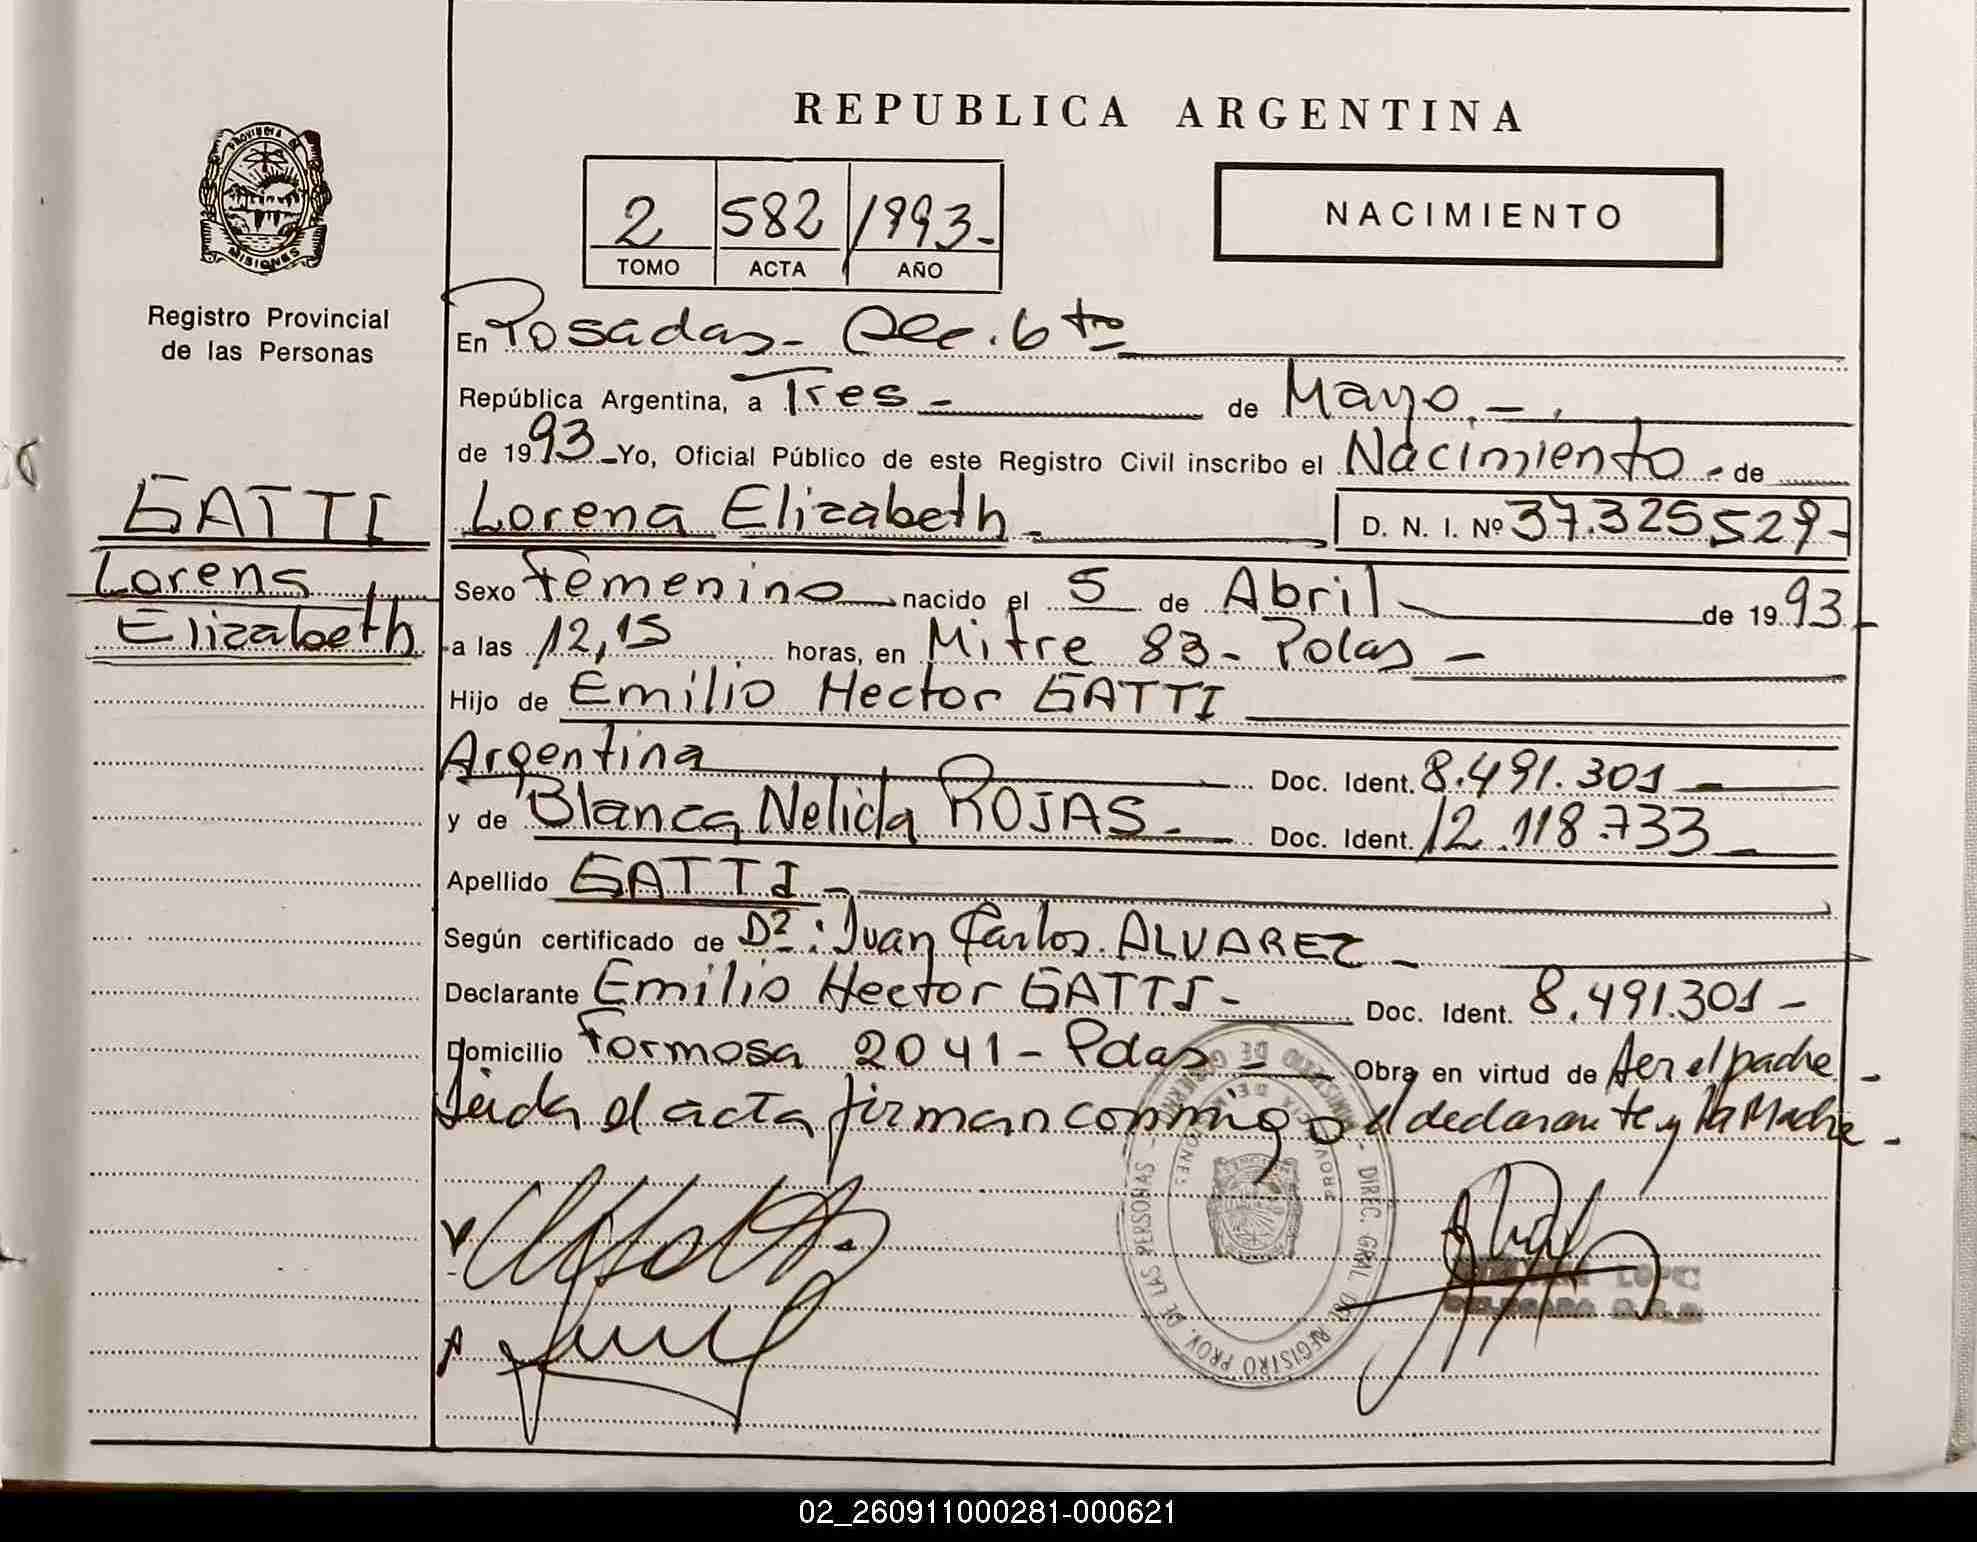 REPUBLICA ARGENTINA
PROVINCIA DE
MISIONES
Registro Provincial
de las Personas
2 582 1993-
TOMO ACTA AÑO
NACIMIENTO
En Posadas - Dec. 6to
República Argentina, a Tres - de Mayo -
de 1993 - Yo, Oficial Público de este Registro Civil inscribo el Nacimiento - de
GATTI
Lorena
Elizabeth
Lorena Elizabeth - D. N. I. Nº 37.325529-
Sexo Femenino nacido el 5 de Abril de 1993-
a las 12,15 horas, en Mitre 83 - Pdas -
Hijo de Emilio Hector GATTI
Argentina Doc. Ident. 8.491.301 -
y de Blanca Nelida ROJAS - Doc. Ident. 12.118.733 -
Apellido GATTI -
Según certificado de Dr: Juan Carlos ALVAREZ -
Declarante Emilio Hector GATTI - Doc. Ident. 8.491.301 -
Domicilio Formosa 2041 - Pdas - Obra en virtud de ser el padre -
Leida el acta firman conmigo el declarante y la Madre -
MINISTERIO DE GOBIERNO - DIREC. GRAL. DEL REGISTRO PROV. DE LAS PERSONAS -
PROVINCIA DE MISIONES
LOPEZ
DELEGADA
02_260911000281-000621